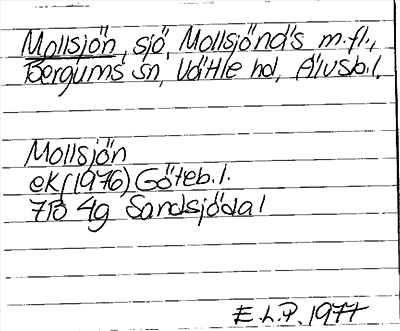 Mollsjön, sjö, Mollsjönäs m.fl.,
Bergums sn, Vättle hd, Älvsb.l.
Mollsjön
ek (1976) Göteb.l.
7B 4g Sandsjödal
E.L.P. 1977